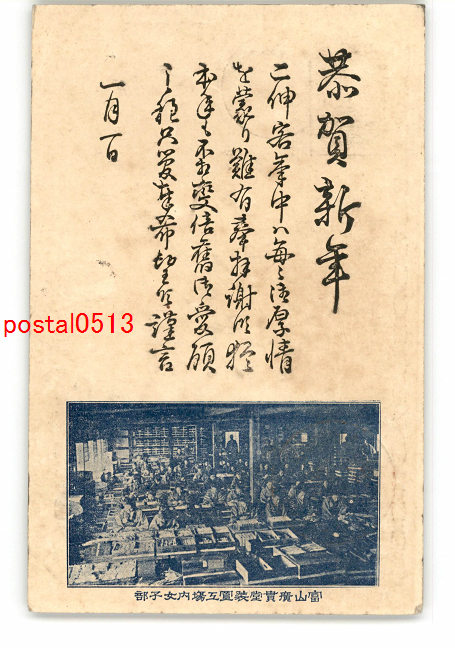 恭賀新年
二伸客年中ハ毎々御厚情
を蒙り難有奉拝謝候猶
本年も不相変倍舊御愛顧
之程只管奉希望候謹言
一月一日
postal0513
富山廣貫堂装置工場内女子部